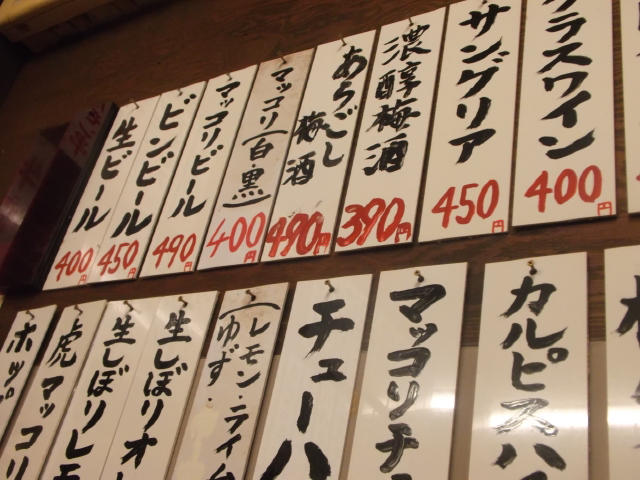 グラスワイン
400円
サングリア
450円
濃醇梅酒
390円
あらごし
梅酒
490円
マッコリ(白・黒)
400円
マッコリビール
490円
ビンビール
450円
生ビール
400円
カルピスハ
マッコリチ
チューハ
(レモン・ライム
ゆず・
生しぼりオ
生しぼりレモ
虎マッコリ
ホッピ